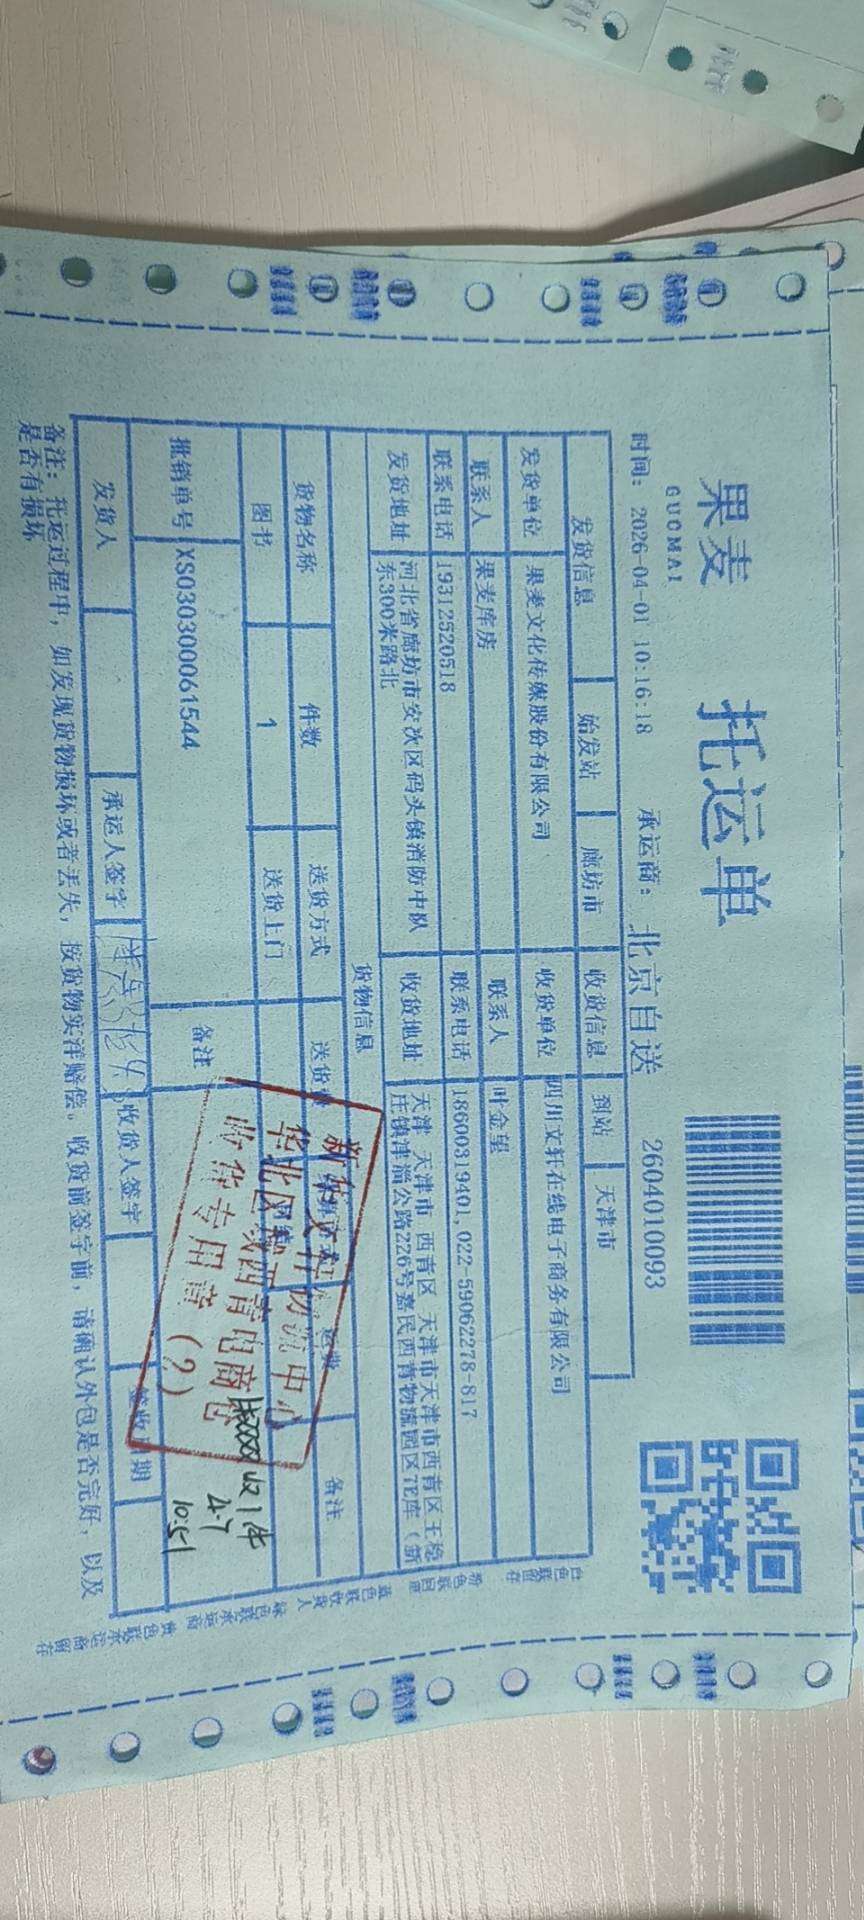 果麦 托运单
GUOMAI
时间: 2026-04-01 10:16:18 承运商: 北京自送 2604010093
发货信息 始发站 廊坊市 收货信息 到站 天津市
发货单位 果麦文化传媒股份有限公司 收货单位 四川文轩在线电子商务有限公司
联系人 果麦库房 联系人 叶金望
联系电话 19312520518 联系电话 18600319401, 022-59062278-817
发货地址 河北省廊坊市安次区码头镇消防中队东300米路北 收货地址 天津 天津市 西青区 天津市天津市西青区王稳庄镇津淄公路226号嘉民西青物流园区7E库（新
货物信息
货物名称 件数 送货方式 送货 运费 备注
图书 1 送货上门
批销单号 XS030300061544 备注
新华文轩物流中心
华北区域西青电商仓
收货专用章（2）
收1件
4.7
10:51
发货人 承运人签字 收货人签字 签收日期
备注: 托运过程中, 如发现货物损坏或者丢失, 按货物实洋赔偿。收货前签字前, 请确认外包是否完好, 以及
是否有损坏
白色联留存
粉色联回单
蓝色联收货人
绿色联承运商
黄色联承运商留存